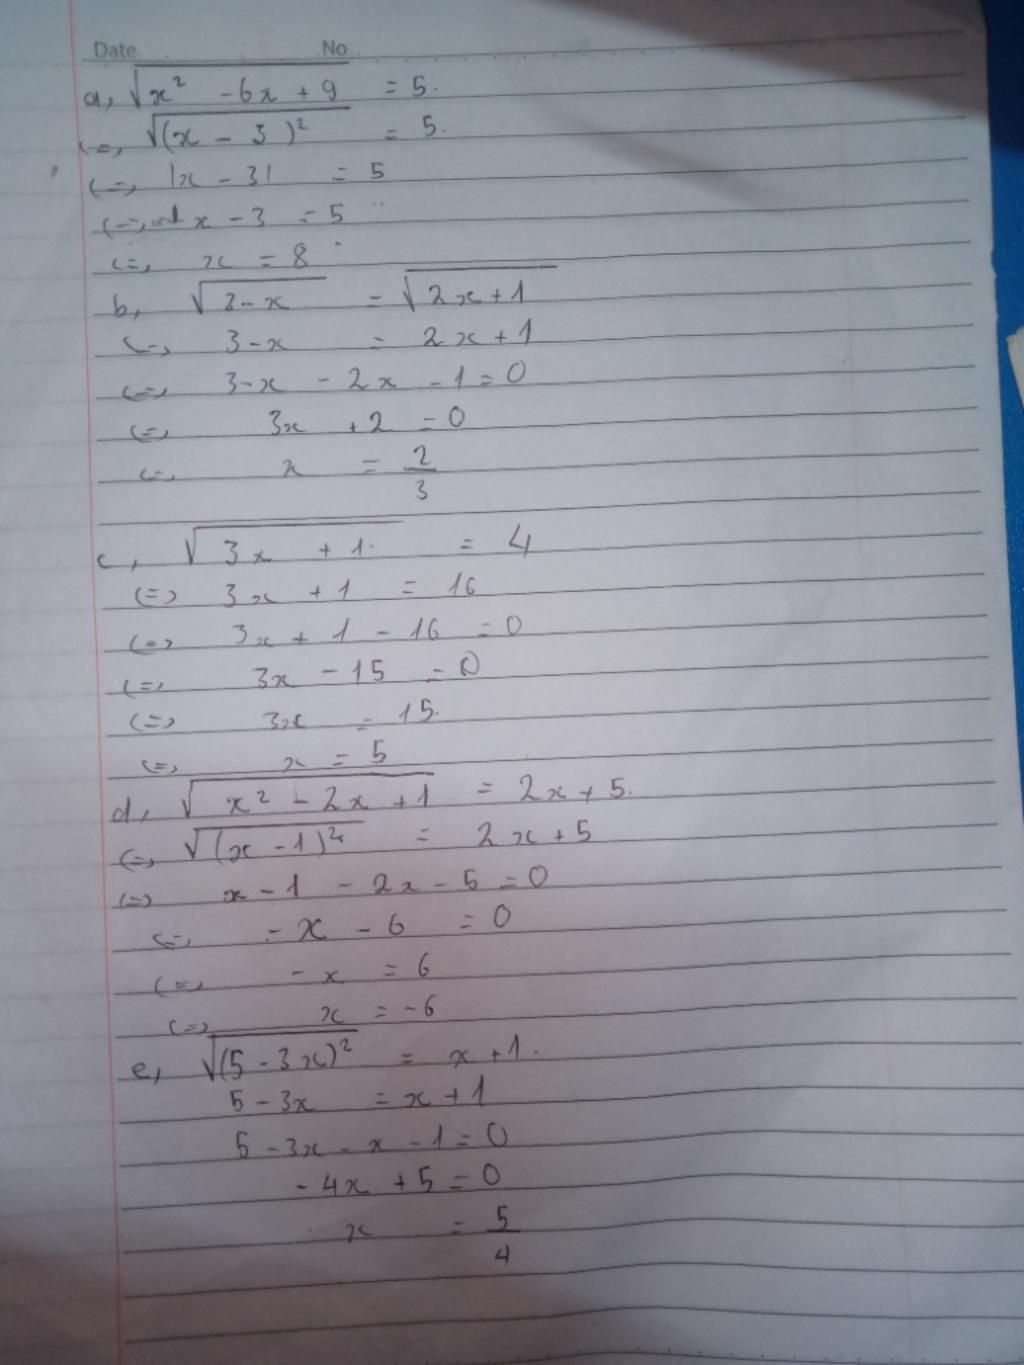 Date No
a, √(x² - 6x + 9) = 5.
<=> √((x - 3)²) = 5.
<=> |x - 3| = 5
<=> x - 3 = 5
<=> x = 8
b, √(3-x) = √(2x+1)
<=> 3-x = 2x+1
<=> 3-x - 2x - 1 = 0
<=> 3x + 2 = 0
<=> x = 2/3
c, √(3x + 1) = 4
<=> 3x + 1 = 16
<=> 3x + 1 - 16 = 0
<=> 3x - 15 = 0
<=> 3x = 15.
<=> x = 5
d, √(x² - 2x + 1) = 2x + 5.
<=> √((x - 1)²) = 2x + 5
<=> x - 1 - 2x - 5 = 0
<=> - x - 6 = 0
<=> - x = 6
<=> x = -6
e, √((5 - 3x)²) = x + 1.
5 - 3x = x + 1
5 - 3x - x - 1 = 0
- 4x + 5 = 0
x = 5/4